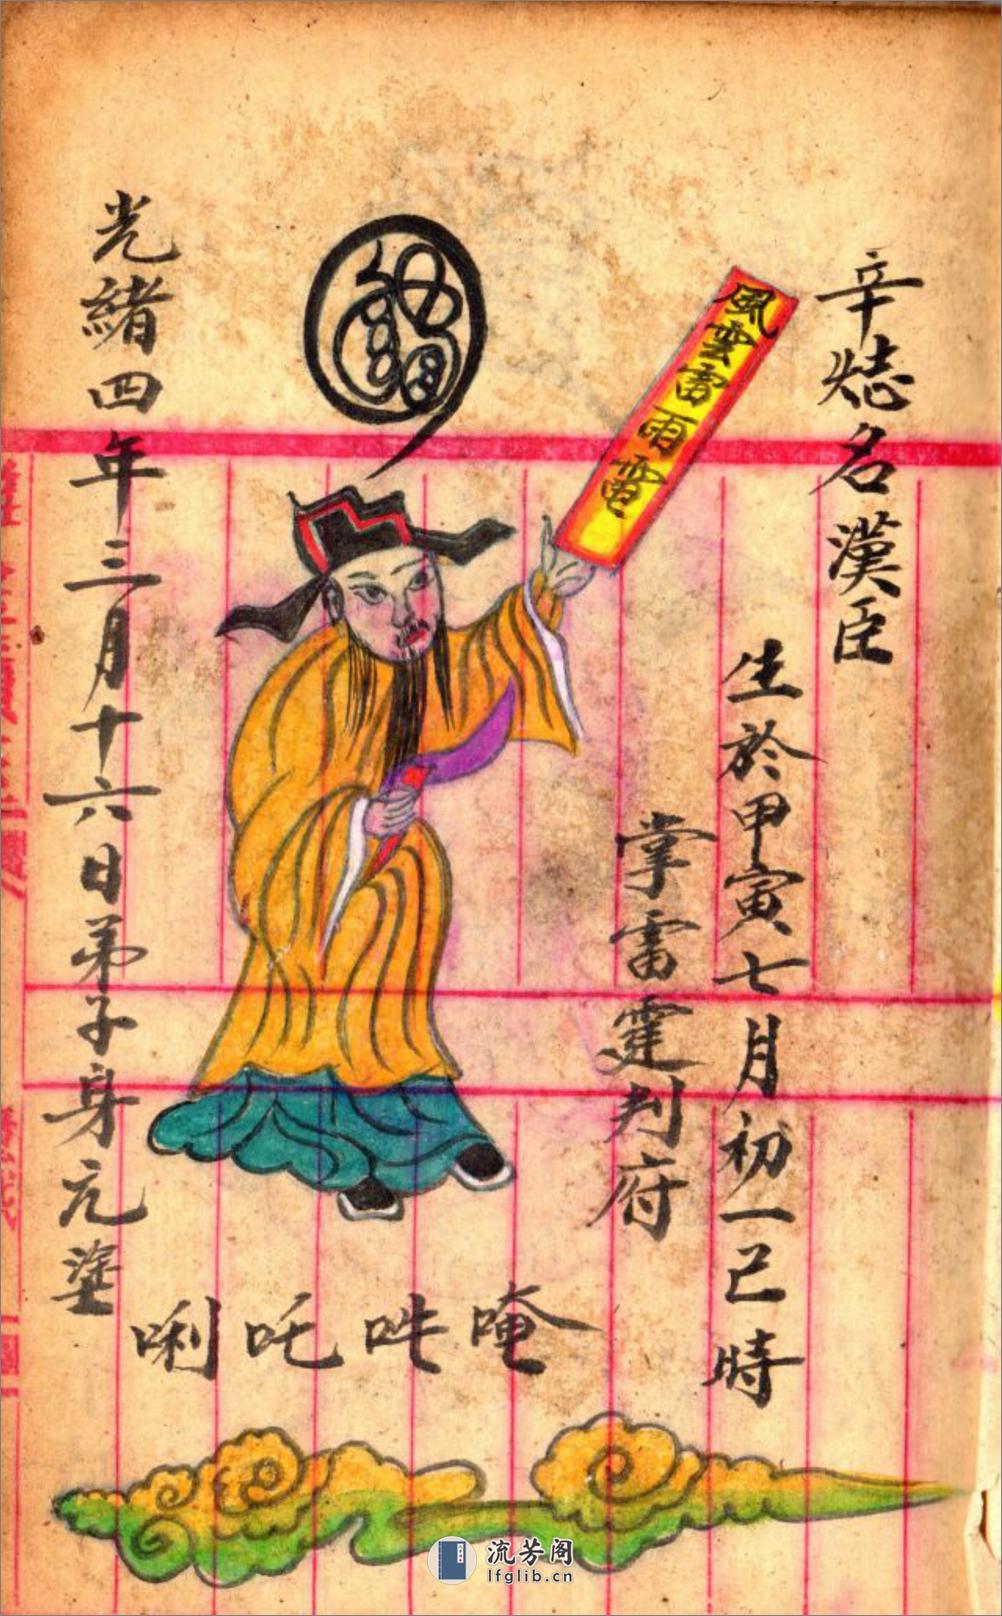 辛㷖名漢臣
生於甲寅七月初一己時
掌雷霆判府
風雲雷雨雹
唵吽吒唎
光緒四年三月十六日弟子身元塗
流芳阁
lfglib.cn